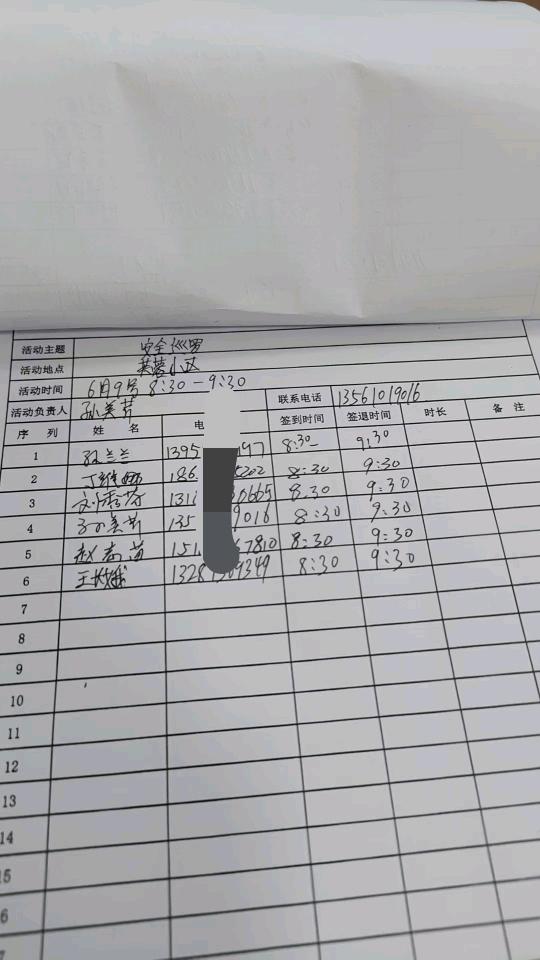 活动主题 安全巡罗
活动地点 芙蓉小区
活动时间 6月9号 8:30-9:30
活动负责人 孙美芳 联系电话 13561019016
序 列 姓 名 电 签到时间 签退时间 时长 备 注
1 兰兰 1395 197 8:30 9:30
2 186 202 8:30 9:30
3 刘 1311 0665 8:30 9:30
4 孙美芳 135 9016 8:30 9:30
5 赵 151 7810 8:30 9:30
6 王 1328 09349 8:30 9:30
7
8
9
10
11
12
13
14
15
6